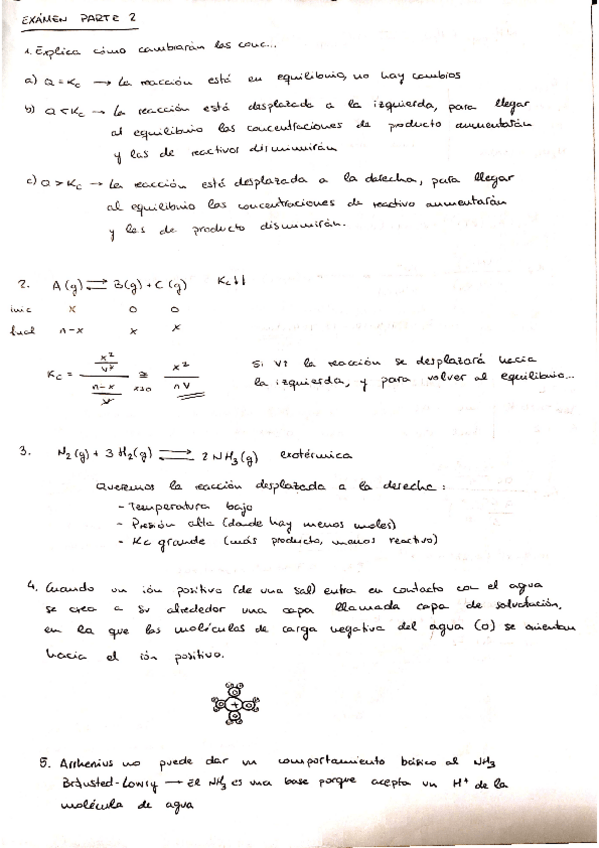 EXÁMEN PARTE 2
1. Explica cómo cambiarán las conc...
a) Q = Kc → La reacción está en equilibrio, no hay cambios
b) Q < Kc → La reacción está desplazada a la izquierda, para llegar
al equilibrio las concentraciones de producto aumentarán
y las de reactivos disminuirán
c) Q > Kc → La reacción está desplazada a la derecha, para llegar
al equilibrio las concentraciones de reactivo aumentarán
y las de producto disminuirán.
2. A(g) ⇌ B(g) + C(g) Kc↓↓
inic x 0 0
final n-x x x
Kc = (x²/V²)/((n-x)/V) ≅ x²/nV
x≥0
Si V↑ la reacción se desplazará hacia
la izquierda, y para volver al equilibrio...
3. N₂(g) + 3 H₂(g) ⇌ 2 NH₃(g) exotérmica
Queremos la reacción desplazada a la derecha:
- Temperatura bajo
- Presión alta (donde hay menos moles)
- Kc grande (más producto, menos reactivo)
4. Cuando un ión positivo (de una sal) entra en contacto con el agua
se crea a su alrededor una capa llamada capa de solvatación,
en la que las moléculas de carga negativa del agua (O) se orientan
hacia el ión positivo.
+
5. Arrhenius no puede dar un comportamiento básico al NH₃
Brønsted-Lowry → El NH₃ es una base porque acepta un H⁺ de la
molécula de agua